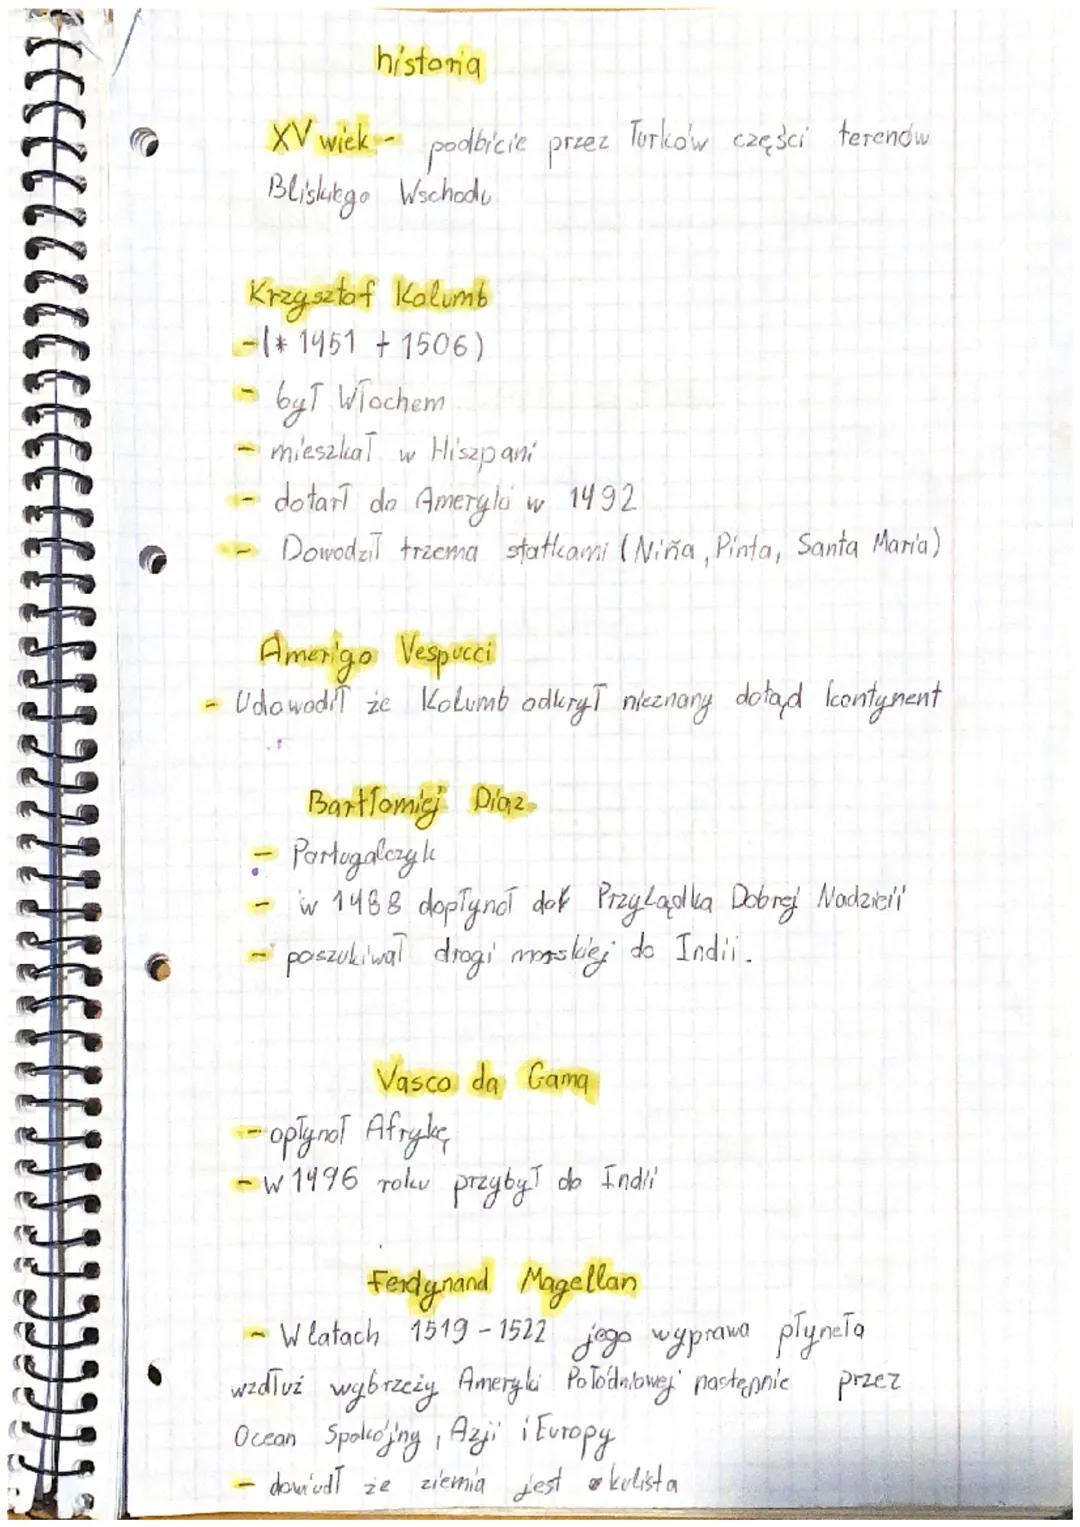 historia
XV wiek - podbicie przez Turków części terenów
Bliskiego Wschodu
Krzysztof Kolumb
- (* 1451 + 1506)
- był Włochem
- mieszkał w Hiszpani
- dotarł do Ameryki w 1492
- Dowodził trzema statkami (Niña, Pinta, Santa Maria)
Amerigo Vespucci
- Udowodił że Kolumb odkrył nieznany dotąd kontynent
Bartłomiej Diaz
- Portugalczyk
- w 1488 dopłynoł do Przylądka Dobrej Nadzieii
- poszukiwał drogi morskiej do Indii.
Vasco da Gama
- opłynoł Afrykę
- w 1496 roku przybył do Indii
Ferdynand Magellan
- W latach 1519 - 1522 jego wyprawa płyneła
wzdłuż wybrzeży Ameryki Połódniowej następnie przez
Ocean Spokójny, Azji i Europy
- dowiudł że ziemia jest kulista